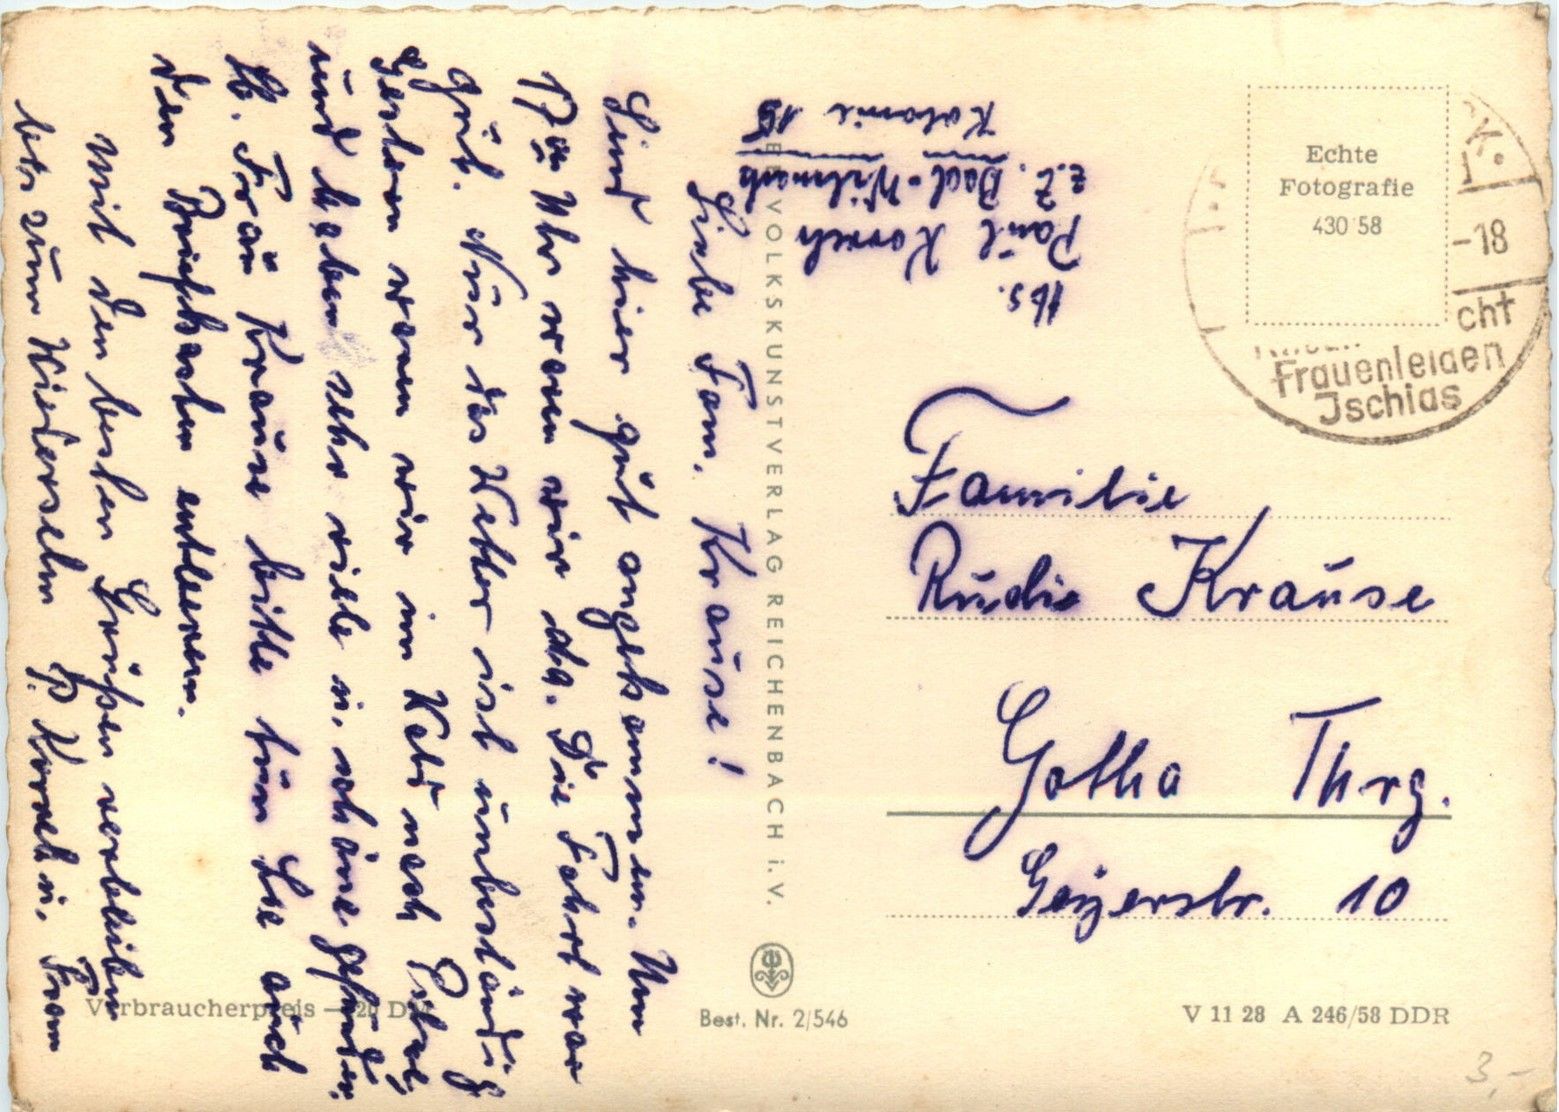 Echte
Fotografie
430 58
-18
cht
Frauenleiden
Jschias
Abs.
Paul Korsch
z.Z. Bad-Wilsnack
Kolonie 19
Familie
Rudie Krause
Gotha Thrg.
Geyerstr. 10
Liebe Fam. Krause!
Sind hier gut angekommen. Um
17 Uhr waren wir da. Die Fahrt war
gut. Nur das Wetter ist unbeständig
Gestern waren wir im Wald nach
und haben sehr viele u. schöne gefunden.
Frau Krause bitte tun Sie auch
den Briefkasten entleeren.
Mit den besten Grüßen verbleiben
bis zum Wiedersehn P. Korsch u. Frau
VEB VOLKSKUNSTVERLAG REICHENBACH i. V.
Verbraucherpreis — 20 DM
Best. Nr. 2/546
V 11 28 A 246/58 DDR
3,-